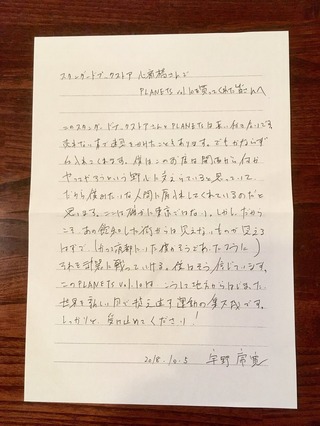 スタンダードブックストア心斎橋さんで
PLANETS vol.10を買ってくれた皆さんへ
このスタンダードブックストアさんとPLANETSは長い付き合いです。
でもかならず
力を入れてくれます。僕はこのお店は関西から何か
やってやろうという野心に支えられていると思っていて、
だから僕みたいな人間に肩入れしてくれているのだと
思います。ここは確かに東京ではない。しかしだから
こそ、あの飽和した街からは見えないものが見える
はずで（かつて京都にいた僕がそうであったように）
それを武器に戦っていける。僕はそう信じています。
このPLANETS vol.10は、こうして地方からはじまった、
世界を新しい目で捉え直す運動の集大成です。
しっかりと、受け止めてください！
2018.10.5 宇野常寛